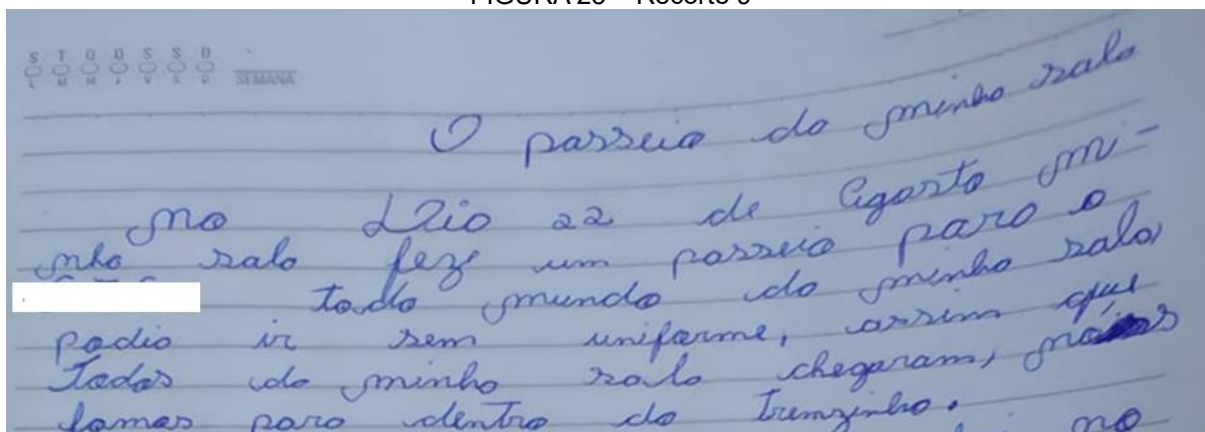 S T Q Q S S D
L M M J V S D SEMANA
O passeio da minha sala
no Dia 22 de Agosto mi-
nha sala fez um passeio para o
todo mundo da minha sala
podia ir sem uniforme, assim que
Todos da minha sala chegaram, nós
fomos para dentro do Tremzinho.
no